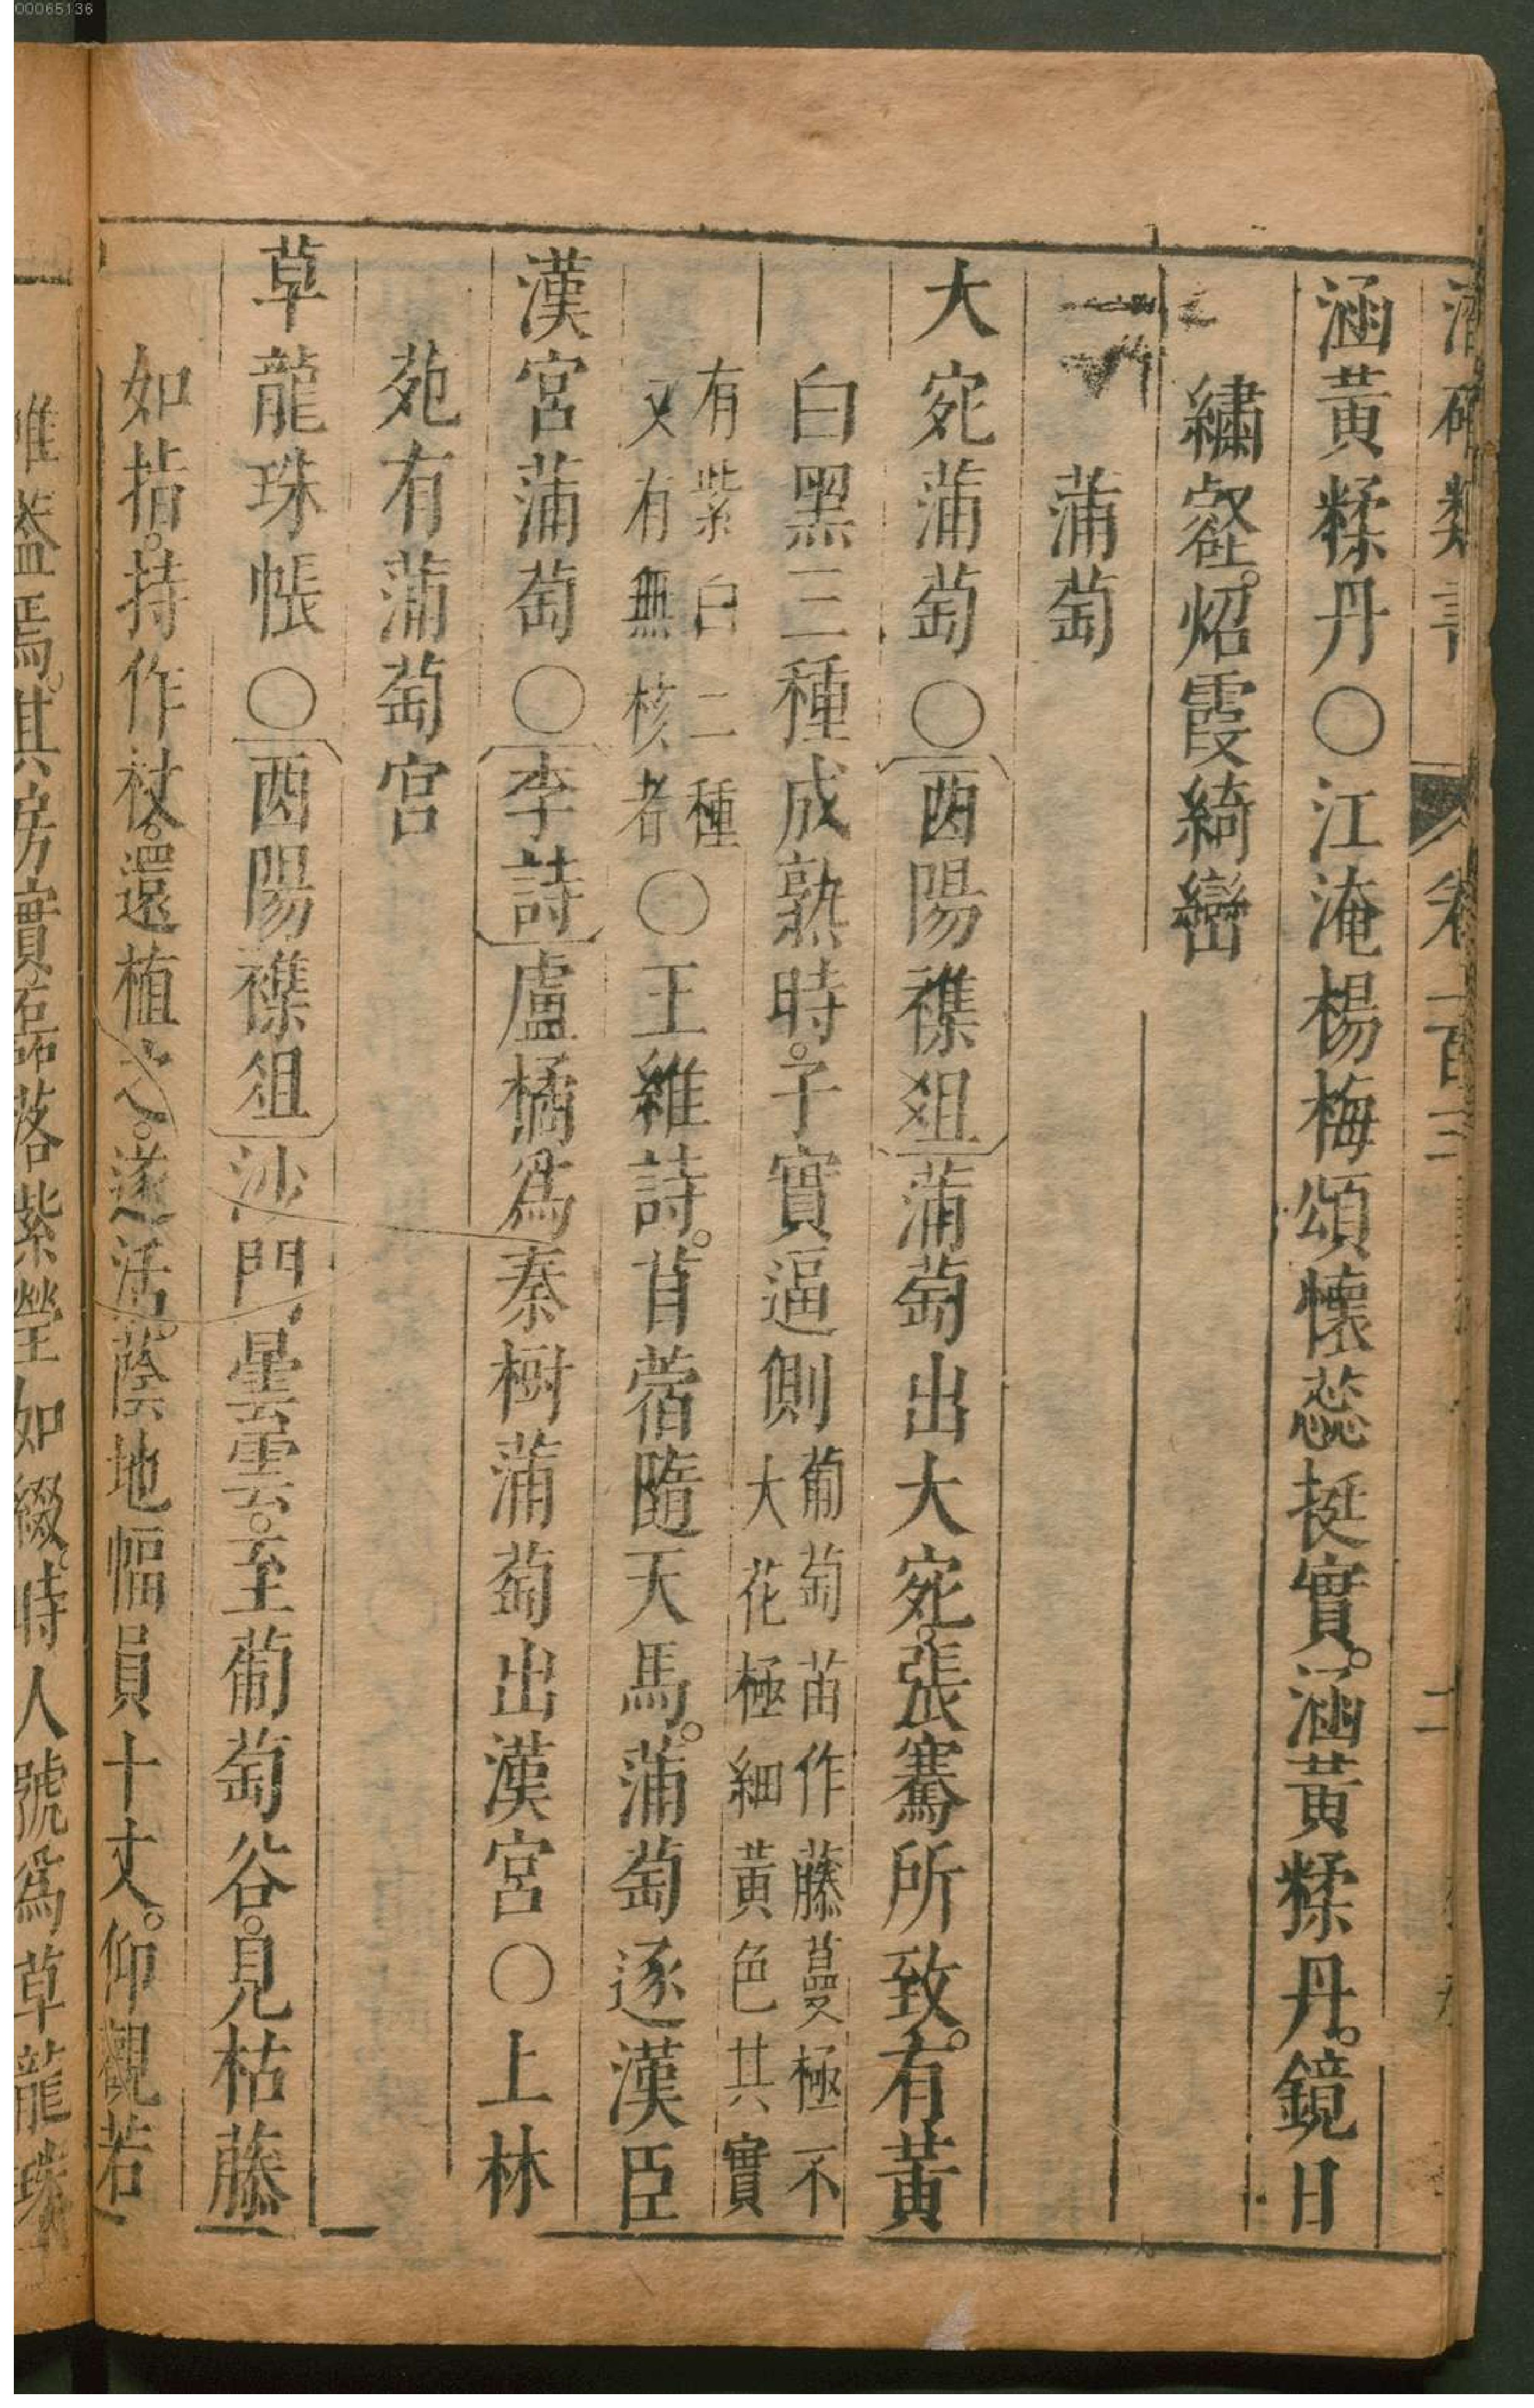 00065136
潛確類書 卷一百三 二
涵黃糅丹〇江淹楊梅頌懷蕊挺實。涵黃糅丹。鏡日
繡壑。炤霞綺巒
蒲萄
大宛蒲萄〇酉陽襍俎蒲萄出大宛。張騫所致。有黃
白黑三種成熟時。子實逼側葡萄苗作藤蔓極不
大花極細黃色其實
有紫白二種
又有無核者〇王維詩。苜蓿隨天馬。蒲萄逐漢臣
漢宮蒲萄〇李詩盧橘爲秦樹蒲萄出漢宮〇上林
苑有蒲萄宮
草龍珠帳〇酉陽襍俎沙門曇雲。至葡萄谷。見枯藤
如指。持作杖。還植之。遂活。蔭地幅員十丈。仰觀若
帷蓋焉。其房實磊落紫瑩如綴。時人號爲草龍珠